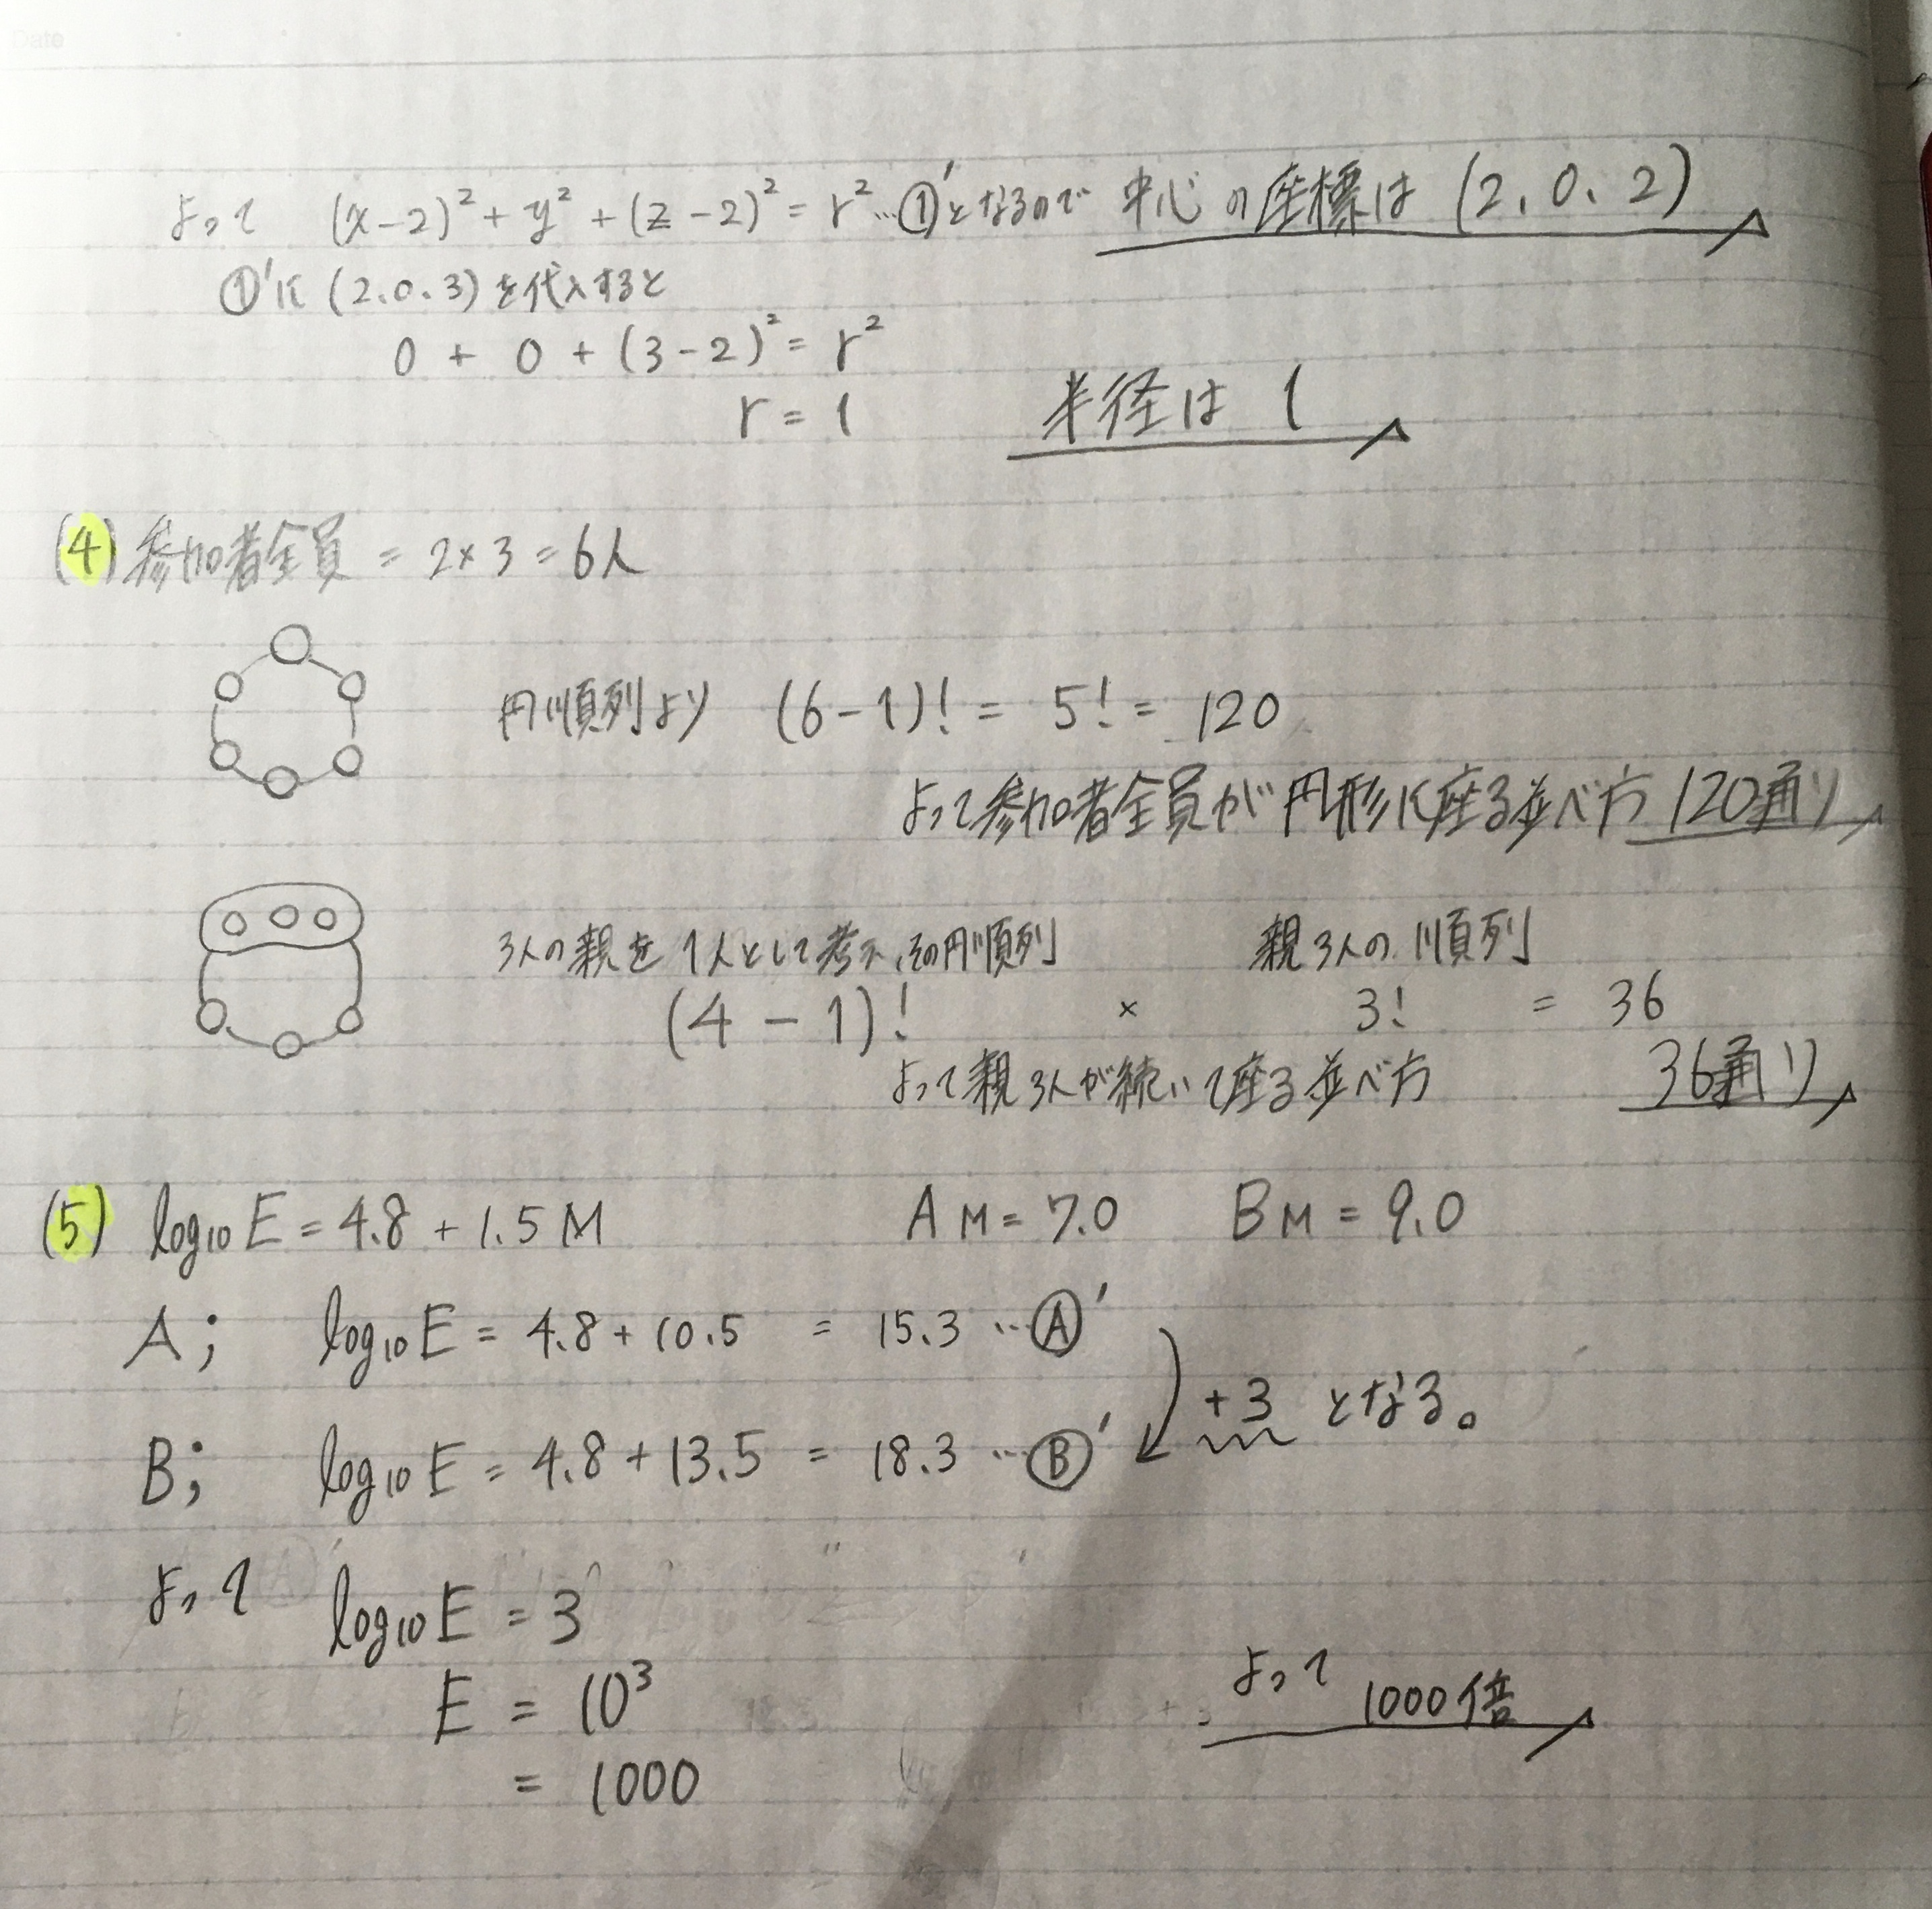 Date
よって (x-2)² + y² + (z-2)² = r² …①'となるので 中心の座標は (2、0、2)
①'に (2、0、3) を代入すると
0 + 0 + (3-2)² = r²
r = 1 半径は 1
(4) 参加者全員 = 2×3 = 6人
円順列より (6-1)! = 5! = 120
よって参加者全員が円形に座る並べ方 120通り
3人の親を 1人として考え、その円順列 親3人の順列
(4-1)! × 3! = 36
よって親3人が続いて座る並べ方 36通り
(5) log₁₀E = 4.8 + 1.5M A M = 7.0 B M = 9.0
A; log₁₀E = 4.8 + 10.5 = 15.3 …Ⓐ'
+3 となる。
B; log₁₀E = 4.8 + 13.5 = 18.3 …Ⓑ'
よって log₁₀E = 3
E = 10³ よって 1000倍
= 1000